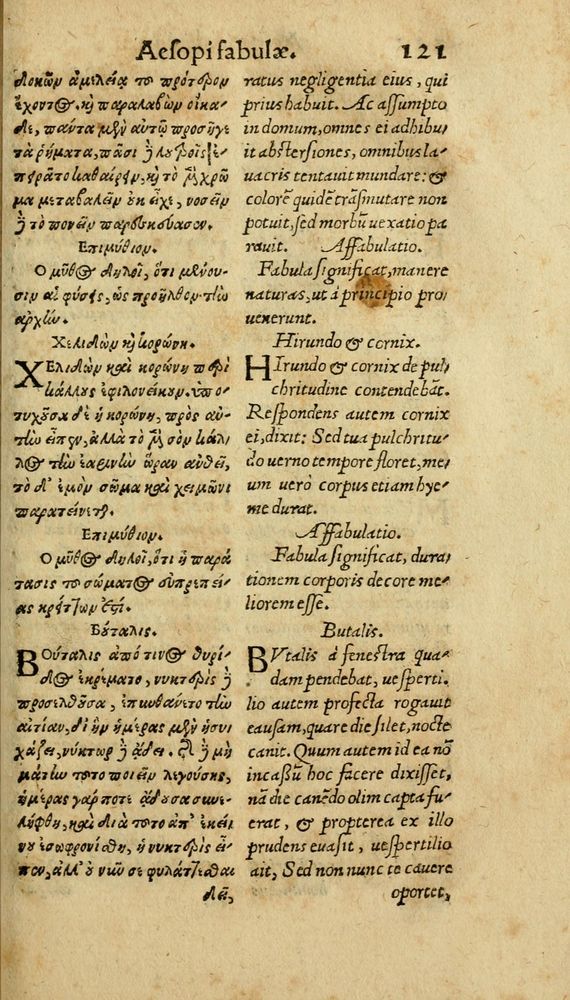 Aesopi fabulæ. 121
δοκῶν ἀμελείᾳ τοῦ πρότερον
ἔχοντος. καὶ παραλαβὼν οἴκα-
δε, πάντα μὲν αὐτῷ προσῆγε
τὰ ῥήματα, πᾶσι δὲ λουτροῖς ἐ-
πειρᾶτο καθαίρειν, καὶ τὸ μὲν χρῶ
μα μεταβαλεῖν οὐκ εἶχε, νοσεῖν
δὲ τὸ πονεῖν παρεσκεύασεν.
Επιμύθιον.
Ο μῦθος δηλοῖ, ὅτι μένου-
σιν αἱ φύσεις, ὡς προῆλθον τὴν
ἀρχήν.
Χελιδὼν καὶ κορώνη.
ΧΕλιδὼν καὶ κορώνη περὶ
κάλλους ἐφιλονείκουν. ὑπο-
τυχοῦσα δὲ ἡ κορώνη, πρὸς αὐ-
τὴν εἶπεν, ἀλλὰ τὸ μὲν σὸν κάλ-
λος τὴν ἐαρινὴν ὥραν ἀνθεῖ,
τὸ δ' ἐμὸν σῶμα καὶ χειμῶνι
παρατείνεται.
Επιμύθιον.
Ο μῦθος δηλοῖ, ὅτι ἡ παρά
τασις τοῦ σώματος εὐπρεπεί-
ας κρείττων ἐστί.
Βούταλις.
ΒΟύταλις ἀπό τινος θυρί-
δος ἐκρέματο, νυκτερὶς δὲ
προσελθοῦσα, ἐπυνθάνετο τὴν
αἰτίαν, δι' ἣν ἡμέρας μὲν ἡσυ
χάζει, νύκτωρ δὲ ᾄδει. τῆς δὲ μὴ
μάτην τοῦτο ποιεῖν λεγούσης,
ἡμέρας γάρ ποτε ᾄδουσα συνε-
λήφθη, καὶ διὰ τοῦτο ἀπ' ἐκεί
νου ἐσωφρονίσθη, ἡ νυκτερὶς εἶ-
πεν, ἀλλ' οὐ νῦν σε φυλάττεσθαι
δεῖ,
ratus negligentia eius, qui
prius habuit. Ac assumpto
in domum, omnes ei adhibu-
it abstersiones, omnibus la-
uacris tentauit mundare: &
colorē quidē trāsmutare non
potuit, sed morbū uexatio pa
rauit. Affabulatio.
Fabula significat, manere
naturas, ut à principio pro-
uenerunt.
Hirundo & cornix.
HIrundo & cornix de pul-
chritudine contendebāt.
Respondens autem cornix
ei, dixit: Sed tua pulchritu-
do uerno tempore floret, me-
um uerò corpus etiam hye-
me durat.
Affabulatio.
Fabula significat, dura-
tionem corporis decore me-
liorem esse.
Butalis.
BVtalis à fenestra qua-
dam pendebat, uesperti.
lio autem profecta rogauit
causam, quare die silet, nocte
canit. Quum autem id ea nō
incassū hoc facere dixisset,
nā die canēdo olim capta fu-
erat, & propterea ex illo
prudens euasit, uespertilio
ait, Sed non nunc te cauere
oportet,